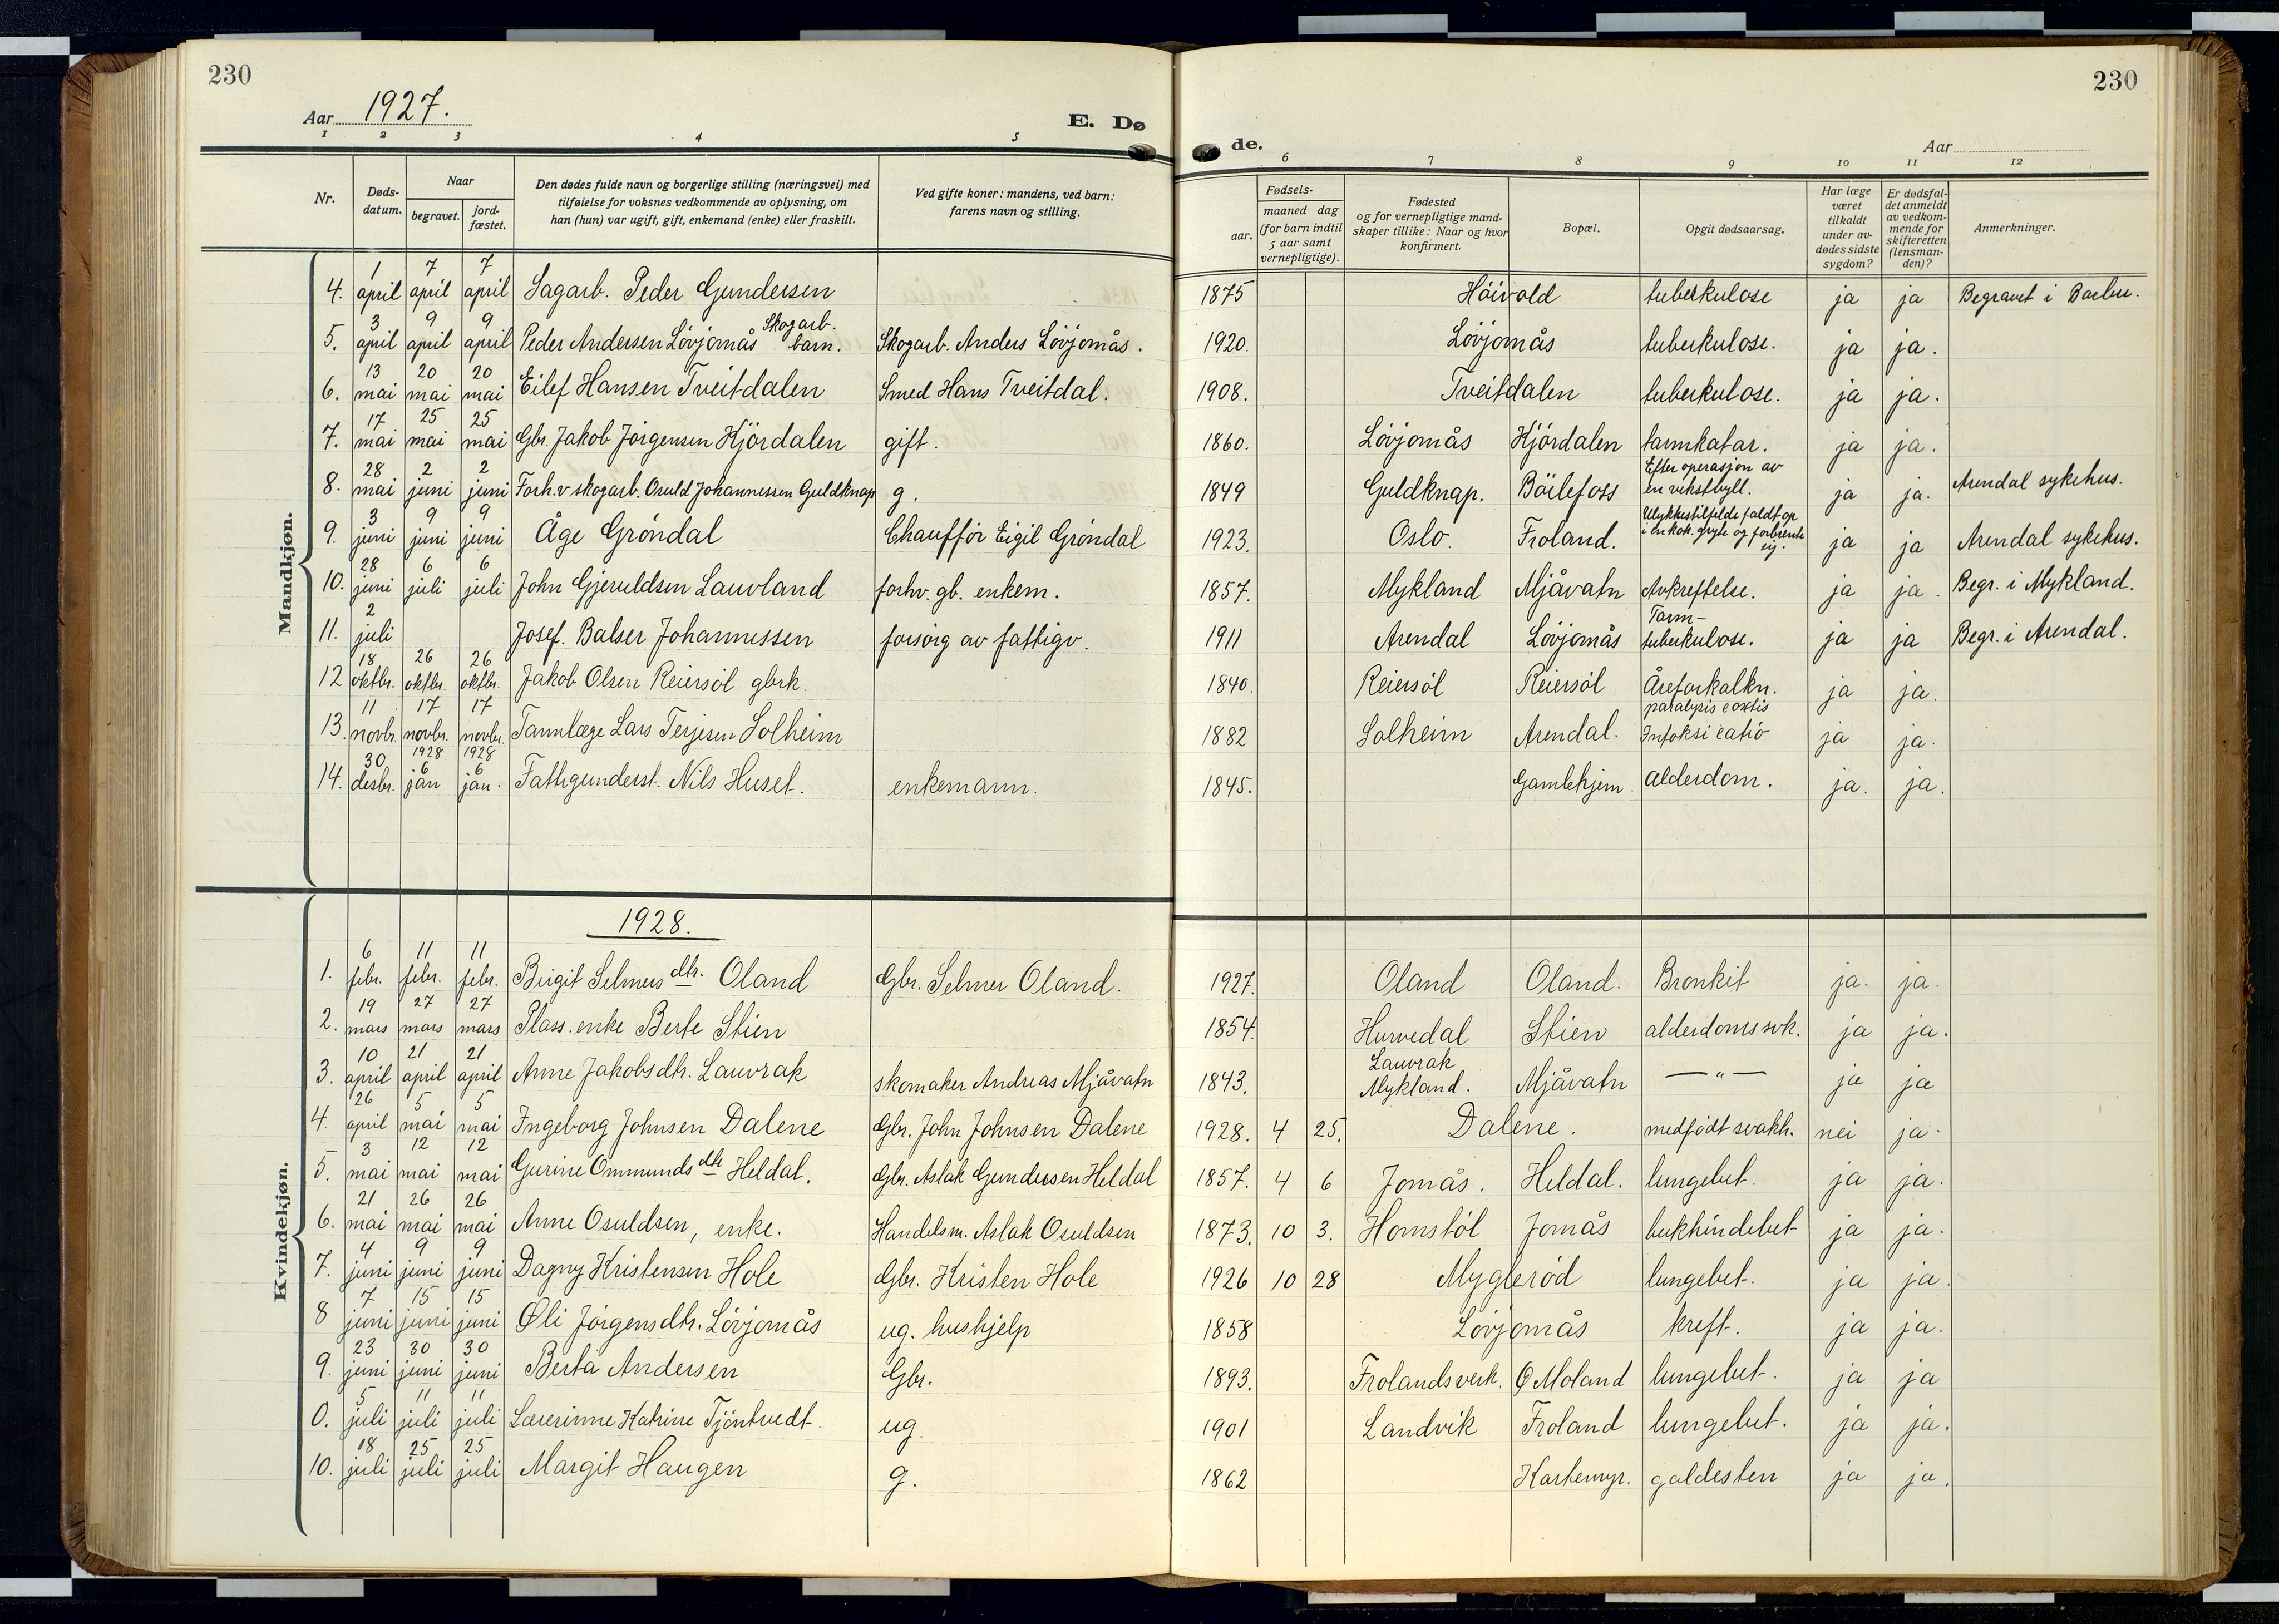 230
230
Aar 1927.
E. Dø
de.
Aar
1 2 3 4 5 6 7 8 9 10 11 12
Nr.
Døds-
datum.
Naar
begravet.
jord-
fæstet.
Den dødes fulde navn og borgerlige stilling (næringsvei) med
tilføielse for voksnes vedkommende av oplysning, om
han (hun) var ugift, gift, enkemand (enke) eller fraskilt.
Ved gifte koner: mandens, ved barn:
farens navn og stilling.
Fødsels-
aar.
maaned dag
(for barn indtil
5 aar samt
vernepligtige).
Fødested
og for vernepligtige mand-
skaper tillike: Naar og hvor
konfirmert.
Bopæl.
Opgit dødsaarsag.
Har læge
været
tilkaldt
under av-
dødes sidste
sygdom?
Er dødsfal-
det anmeldt
av vedkom-
mende for
skifteretten
(lensman-
den)?
Anmerkninger.
Mandkjøn.
4. 1 april 7 april 7 april Sagarb. Peder Gundersen 1875 Höivold tuberkulose ja ja Begravet i Barbu.
5. 3 april 9 april 9 april Peder Andersen Lövjomås Skogarb. barn. Skogarb. Anders Lövjomås. 1920. Lövjomås tuberkulose. ja ja.
6. 13 mai 20 mai 20 mai Eilef Hansen Tveitdalen Smed Hans Tveitdal. 1908. Tveitdalen tuberkulose. ja ja.
7. 17 mai 25 mai 25 mai Gbr. Jakob Jörgensen Hjördalen gift. 1860. Lövjomås Hjördalen tarmkatar. ja ja.
8. 28 mai 2 juni 2 juni Forh.v skogarb. Osuld Johannessen Guldknap g. 1849 Guldknap. Böilefoss Efter operasjon av en vekstbyll. ja ja. Arendal sykehus.
9. 3 juni 9 juni 9 juni Åge Gröndal Chafför Eigil Gröndal 1923. Oslo. Froland. Ulykkestilfelde faldt op i en kok. gryte og forbrente sig. ja ja Arendal sykehus.
10. 28 juni 6 juli 6 juli John Gjeruldsen Lauvland forhv. gb. enkem. 1857. Mykland Mjåvatn Avkreftelse. ja ja. Begr. i Mykland.
11. 2 juli Josef. Balser Johannessen forsörg av fattigv. 1911 Arendal Lövjomås Tarm- tuberkulose. ja ja Begr. i Arendal.
12 18 oktbr. 26 oktbr. 26 oktbr. Jakob Olsen Reiersöl gbrk. 1840. Reiersöl Reiersöl Åreforkalkn. ja ja.
13. 11 novbr. 17 novbr. 17 novbr. Tannlæge Lars Terjesen Solheim 1882 Solheim Arendal. paralysis ja ja.
14. 30 desbr. 1928 6 jan 1928 6 jan. Fattigunderst. Nils Huset. enkemann. 1845. Gamlehjem. Alderdom. ja. ja.
Kvindekjøn.
1928.
1. 6 febr. 11 febr. 11 febr. Birgit Selmersdtr. Oland Gbr. Selmer Oland. 1927. Oland Oland. Bronkit ja. ja.
2. 19 mars 27 mars 27 mars Plass. enke Berte Stien 1854. Hurvedal Stien alderdomssvk. ja ja.
3. 10 april 21 april 21 april Anne Jakobsdtr. Lauvrak skomaker Andreas Mjåvatn 1843. Lauvrak Mykland. Mjåvatn —"— ja ja
4. 26 april 5 mai 5 mai Ingeborg Johnsen Dalene Gbr. John Johnsen Dalene 1928. 4 25. Dalene. medfödt svakh. nei ja.
5. 3 mai 12 mai 12 mai Gurine Ommundsdtr Heldal. Gbr. Aslak Gundersen Heldal 1857. 4 6 Jomås. Heldal. lungebet. ja ja.
6. 21 mai 26 mai 26 mai Anne Osuldsen, enke. Handelsm. Aslak Osuldsen 1873. 10 3. Homstöl Jomås bukhindebet ja ja.
7. 4 juni 9 juni 9 juni Dagny Kristensen Hole Gbr. Kristen Hole 1926 10 28 Mygleröd lungebet. ja ja.
8 7 juni 15 juni 15 juni Oli Jörgensdtr. Lövjomås ug. hushjelp 1858 Lövjomås kreft. ja ja.
9. 23 juni 30 juni 30 juni Berta Andersen Gbr. 1893. Frolandsverk. O Moland lungebet. ja ja
0. 5 juli 11 juli 11 juli Lærerinne Katrine Tjöntvedt. ug. 1901 Landvik Froland lungebet. ja ja.
10. 18 juli 25 juli 25 juli Margit Haugen g. 1862 Kartemyr. galdesten ja ja.